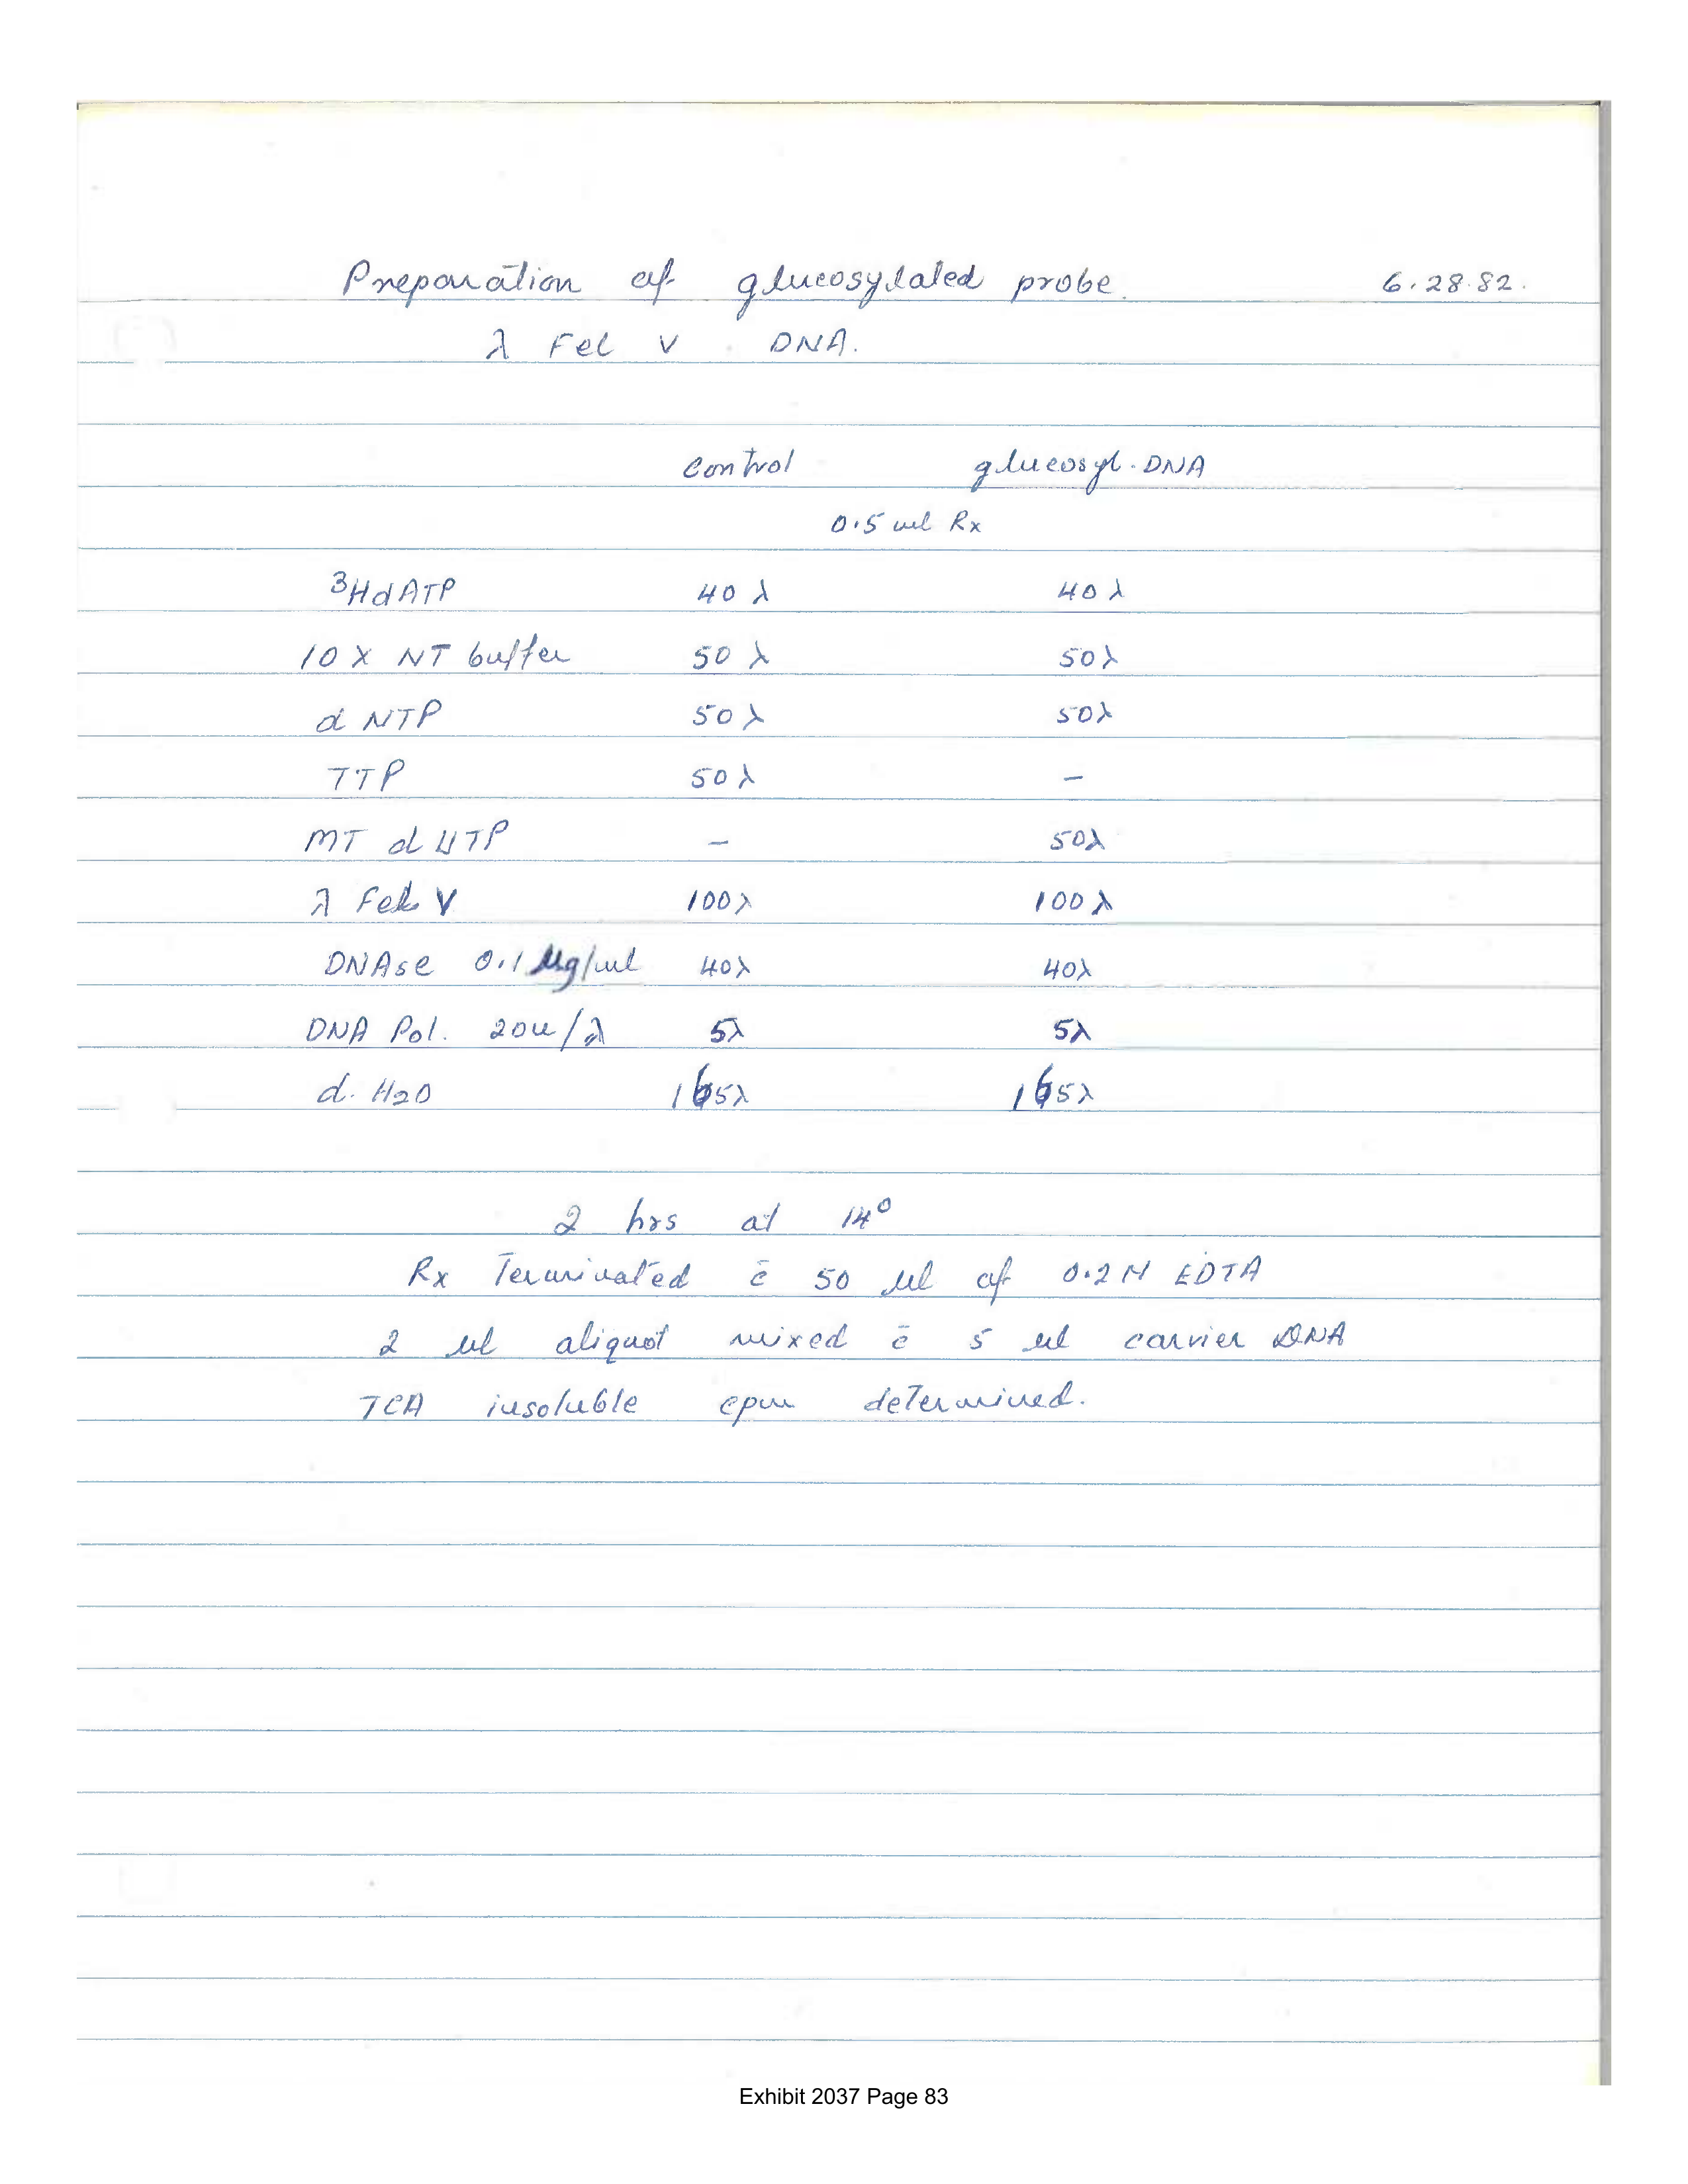 Preparation of glucosylated probe. 6.28.82.
λ Fel V DNA.
Control glucosyl. DNA
0.5 ml Rx
3H dATP 40 λ 40 λ
10 X NT buffer 50 λ 50 λ
d NTP 50 λ 50 λ
TTP 50 λ –
MT d UTP – 50 λ
λ Fel V 100 λ 100 λ
DNAse 0.1 µg/ml 40 λ 40 λ
DNA Pol. 20u/λ 5λ 5λ
d. H2O 165λ 165λ
2 hrs at 14°
Rx Terminated c̄ 50 µl of 0.2 M EDTA
2 µl aliquot mixed c̄ 5 µl carrier DNA
TCA insoluble cpm determined.
Exhibit 2037 Page 83